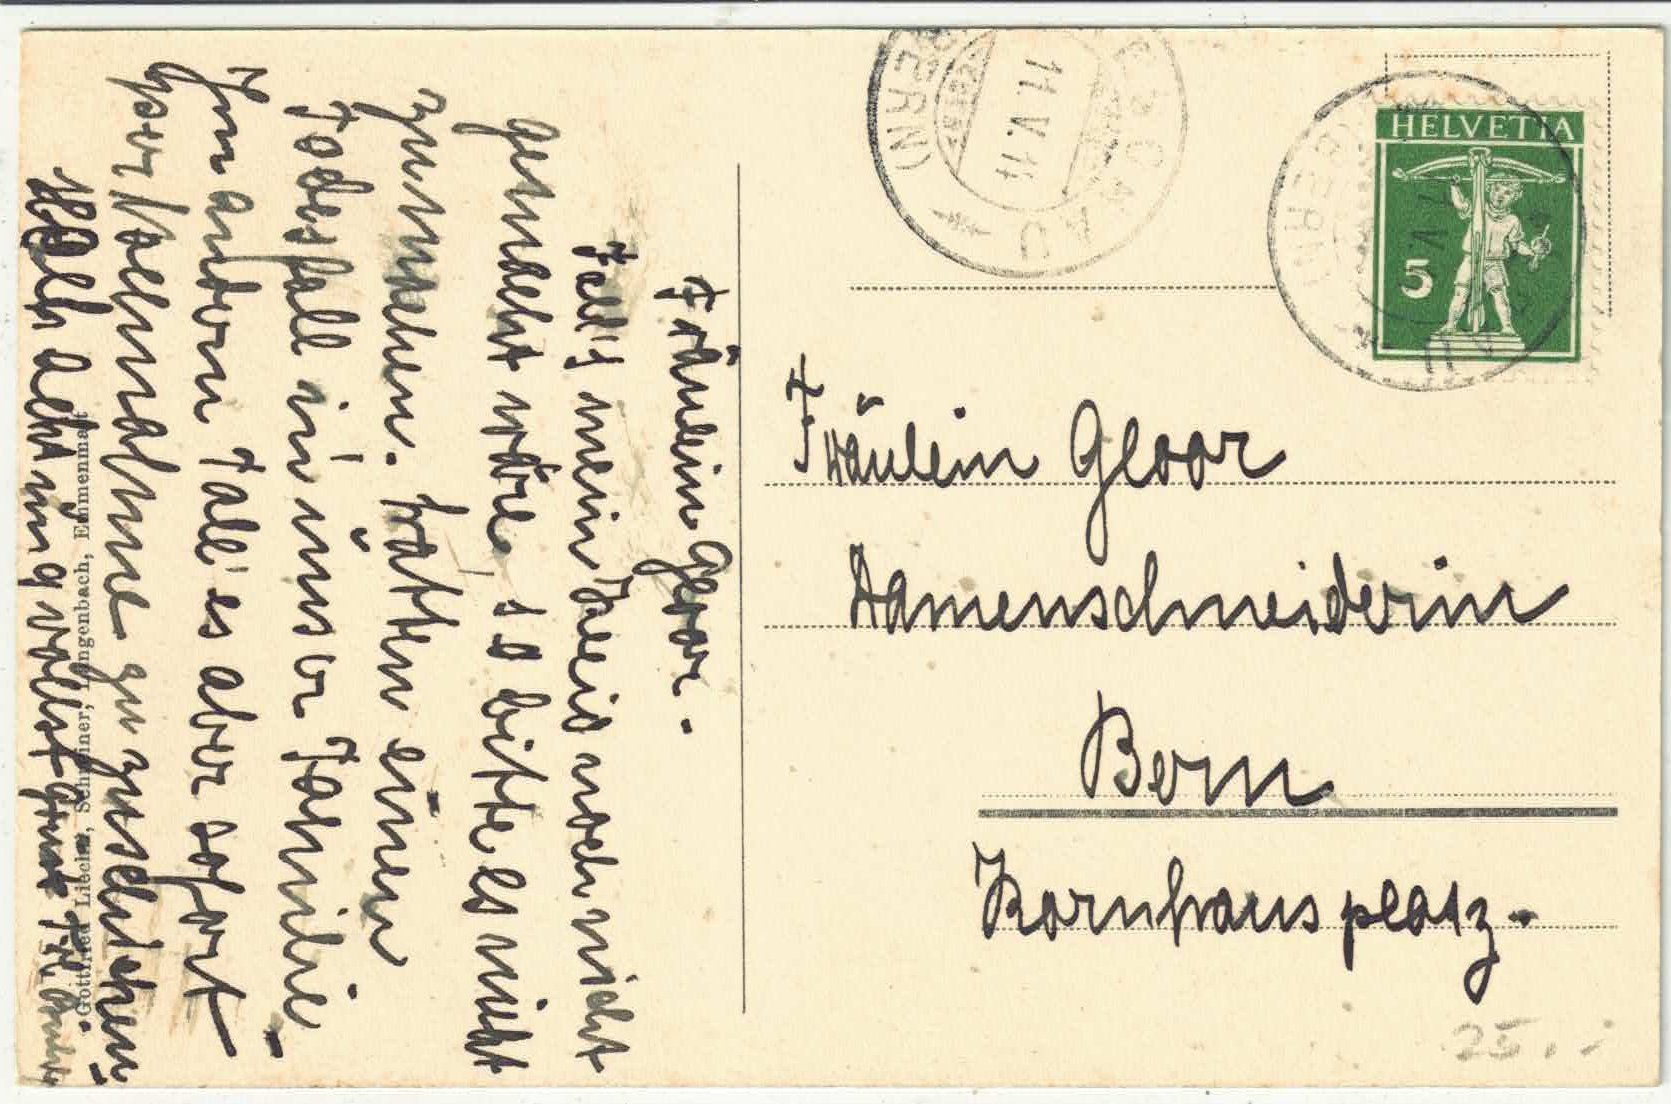 Fräulein Gloor.
Falls mein Kleid noch nicht
gemacht wäre, so bitte es nicht
zu machen. Hatten einen
Todesfall in unsrer Familie.
Im andern Fall es aber sofort
per Nachnahme zu zuschicken.
Gottfried Liechti, Schreiner, Langenbach, Emmenmatt
HELVETIA
5
11.V.14
(BERN)
V.
BERN
Fräulein Gloor
Damenschneiderin
Bern
Kornhausplatz.
25.-